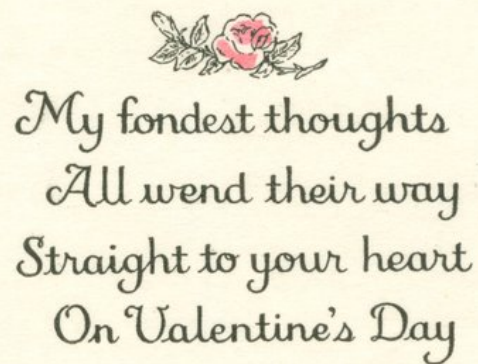 My fondest thoughts
All wend their way
Straight to your heart
On Valentine's Day